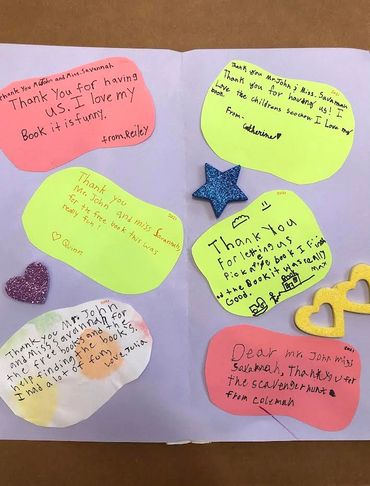 Thank You Mr John and Miss. Savannah
Thank You for having
US. I love my
Book it is funny.
from, Reiley
Thank you
Mr. John and miss Savannah
for the free book this was
really fun!
♡ Quinn
Thank you Mr. John
and Miss. Savannah for
the free books and the
help finding the books.
I had a lot of fun,
Love, Julia
Thank you Mr John & Miss. Savannah
Thank you for having us! I
Love the childrens I Love my
book
From-
Catherine♥
Thank You
For letting us
Pick a free book I
the Book it was really
Good.
max
Dear mr. John miss
Savannah, Thank you for
the scavenger hunt
from coleman